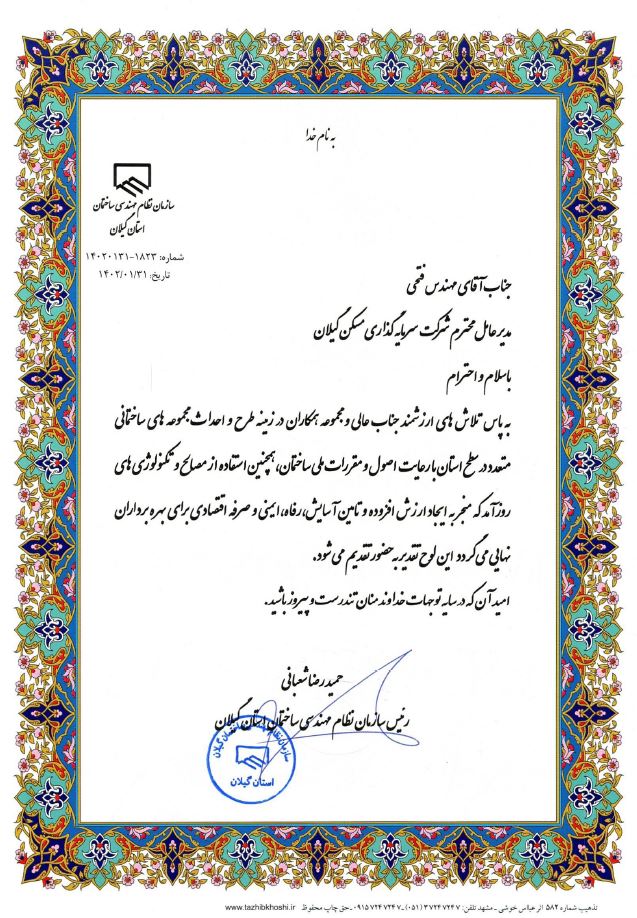 به نام خدا
سازمان نظام مهندسی ساختمان
استان گیلان
شماره: ۱۸۲۳-۱۴۰۲۰۱۳۱
تاریخ: ۱۴۰۲/۰۱/۳۱
جناب آقای مهندس فتحی
مدیر عامل محترم شرکت سرمایه گذاری مسکن گیلان
با سلام و احترام
به پاس تلاش های ارزشمند جناب عالی و مجموعه همکاران در زمینه طرح و احداث مجموعه های ساختمانی
متعدد در سطح استان با رعایت اصول و مقررات ملی ساختمان، همچنین استفاده از مصالح و تکنولوژی های
روزآمد که منجر به ایجاد ارزش افزوده و تامین آسایش، رفاه، ایمنی و صرفه اقتصادی برای بهره برداران
نهایی می گردد این لوح تقدیر به حضور تقدیم می شود.
امید آن که در سایه توجهات خداوند منان تندرست و پیروز باشید.
حمیدرضا شعبانی
رئیس سازمان نظام مهندسی ساختمان استان گیلان
سازمان نظام مهندسی ساختمان گیلان
استان گیلان
تذهیب شماره ۵۸۲ اثر عباس خوشی - مشهد تلفن: ۳۷۲۴۷۲۴۷ (۰۵۱) - ۰۹۱۵۷۲۴۷۲۴۷ - حق چاپ محفوظ www.tazhibkhoshi.ir